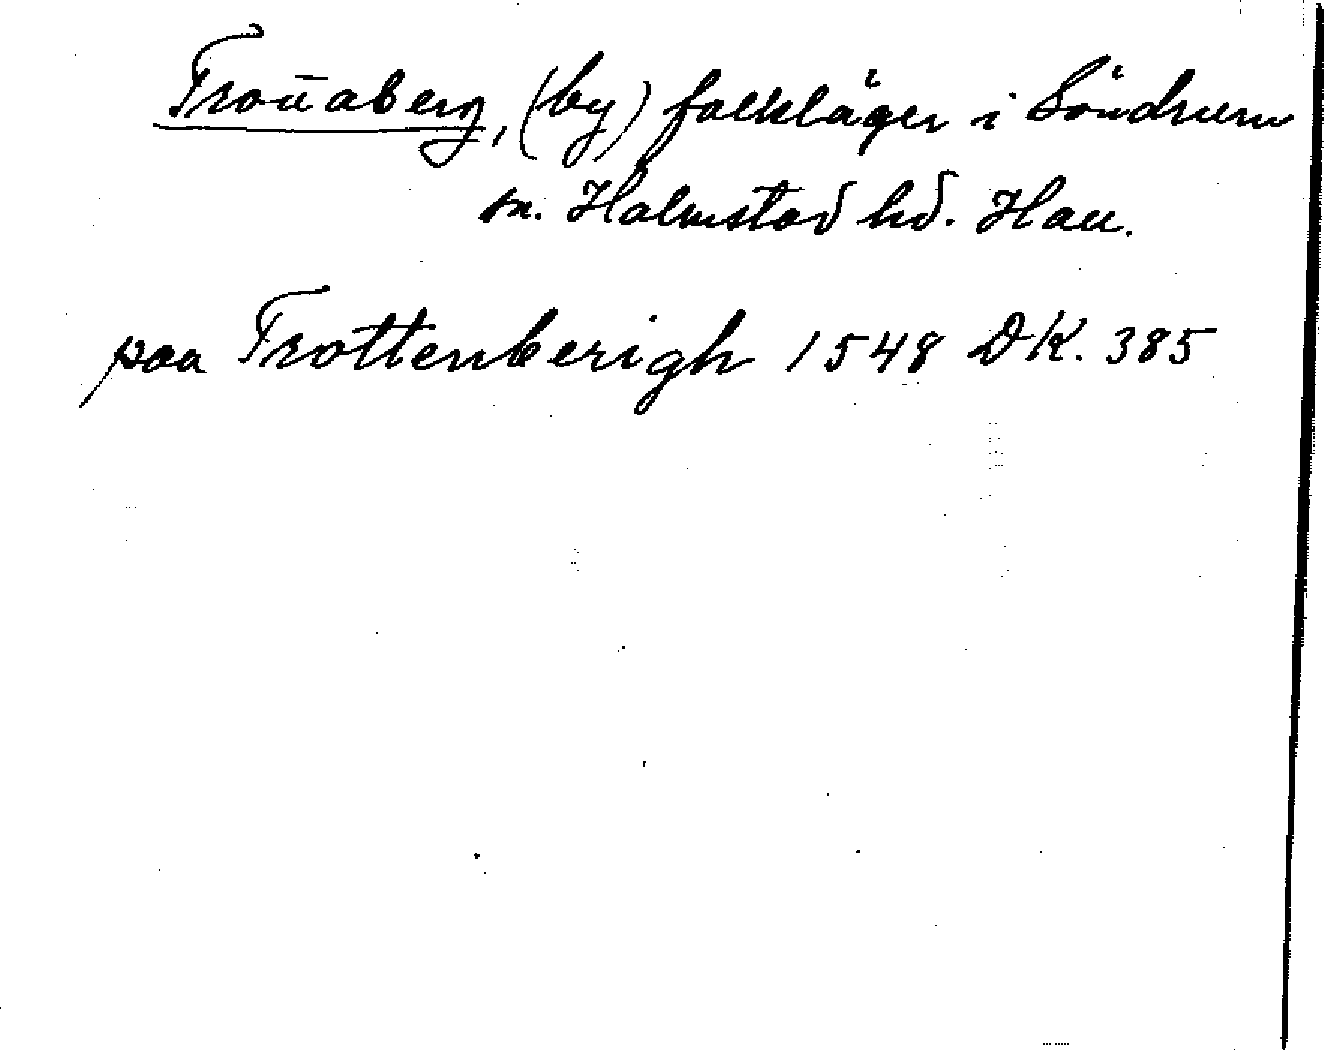 Tron̄aberg, (by) folkläger i Söndrum
sn. Halmstad hd. Hall.
paa Trottenberigh 1548 DK. 385